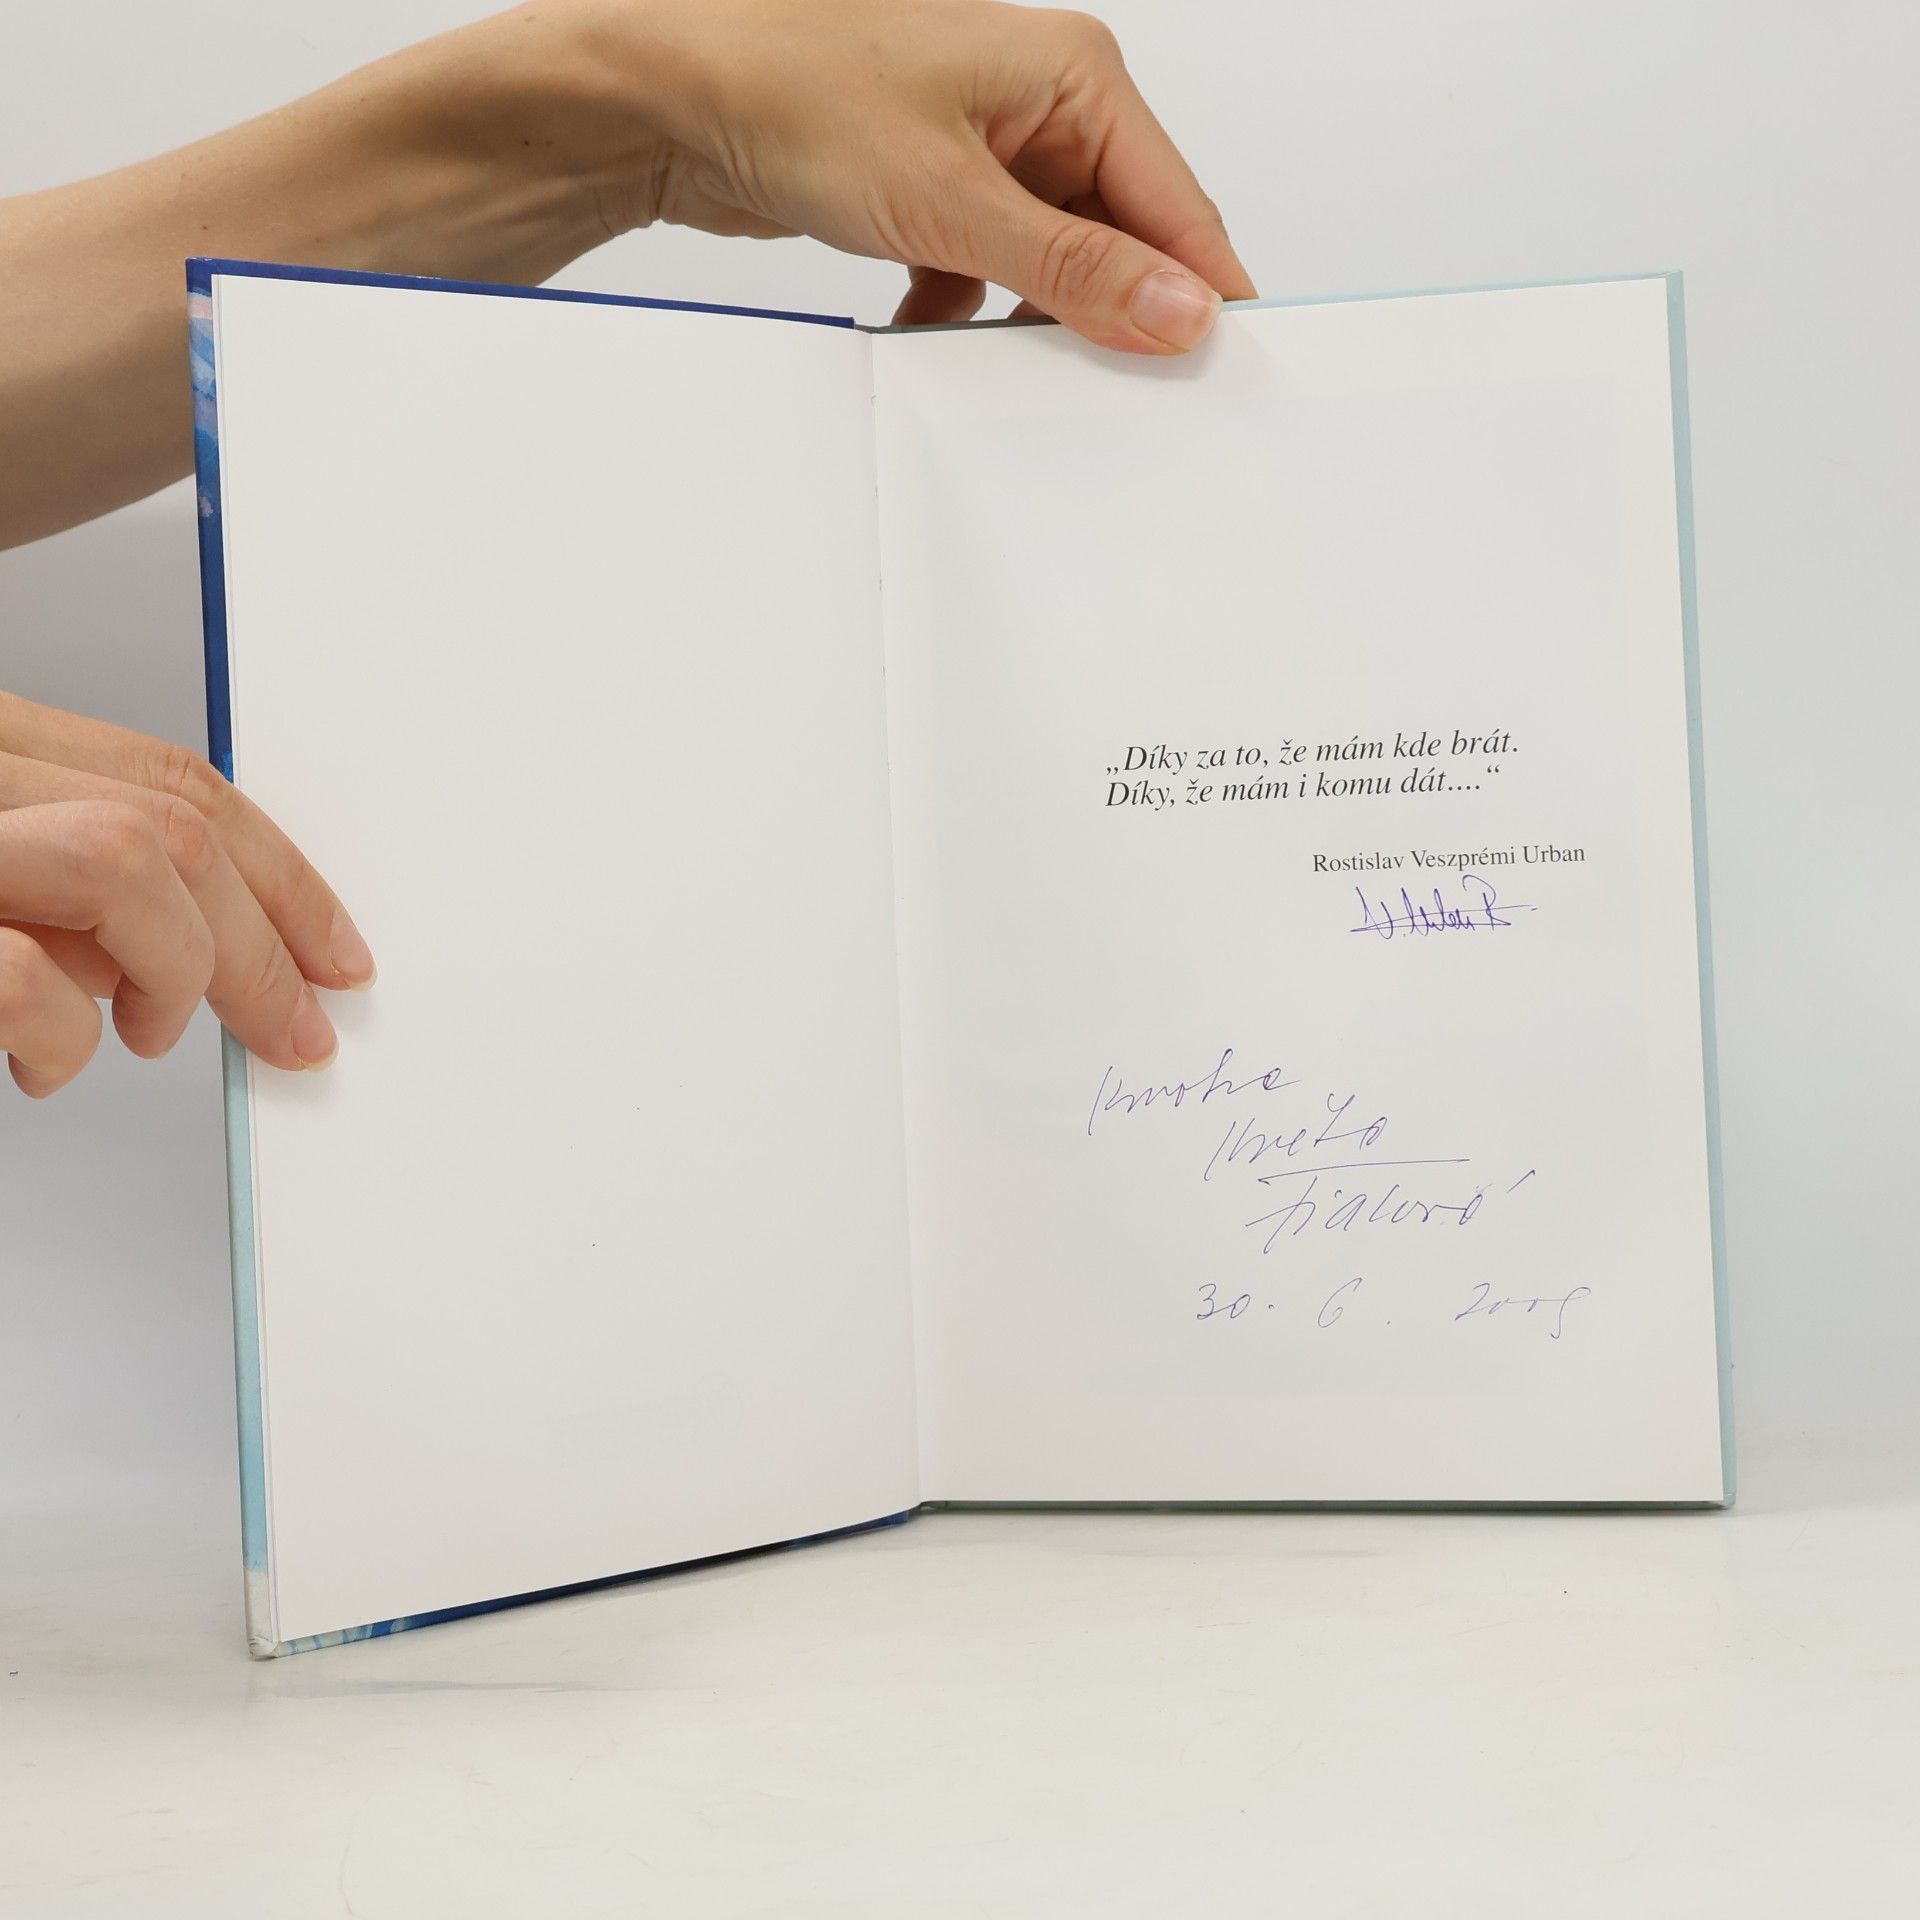 „Díky za to, že mám kde brát.
Díky, že mám i komu dát....“
Rostislav Veszprémi Urban
Květa
Fialová
30. 6. 2005